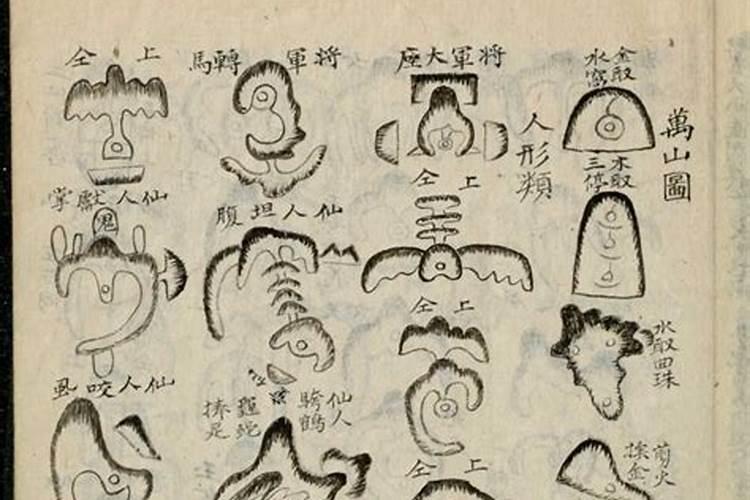 萬山圖
金取
水窩
木取
三停
水取曲珠
火
金
人形類
将軍大座
上仝
上仝
上仝
将軍轉馬
仙人坦腹
仙人
鶴
龜蛇
足
上仝
仙人獻掌
鬼
仙人咬虱